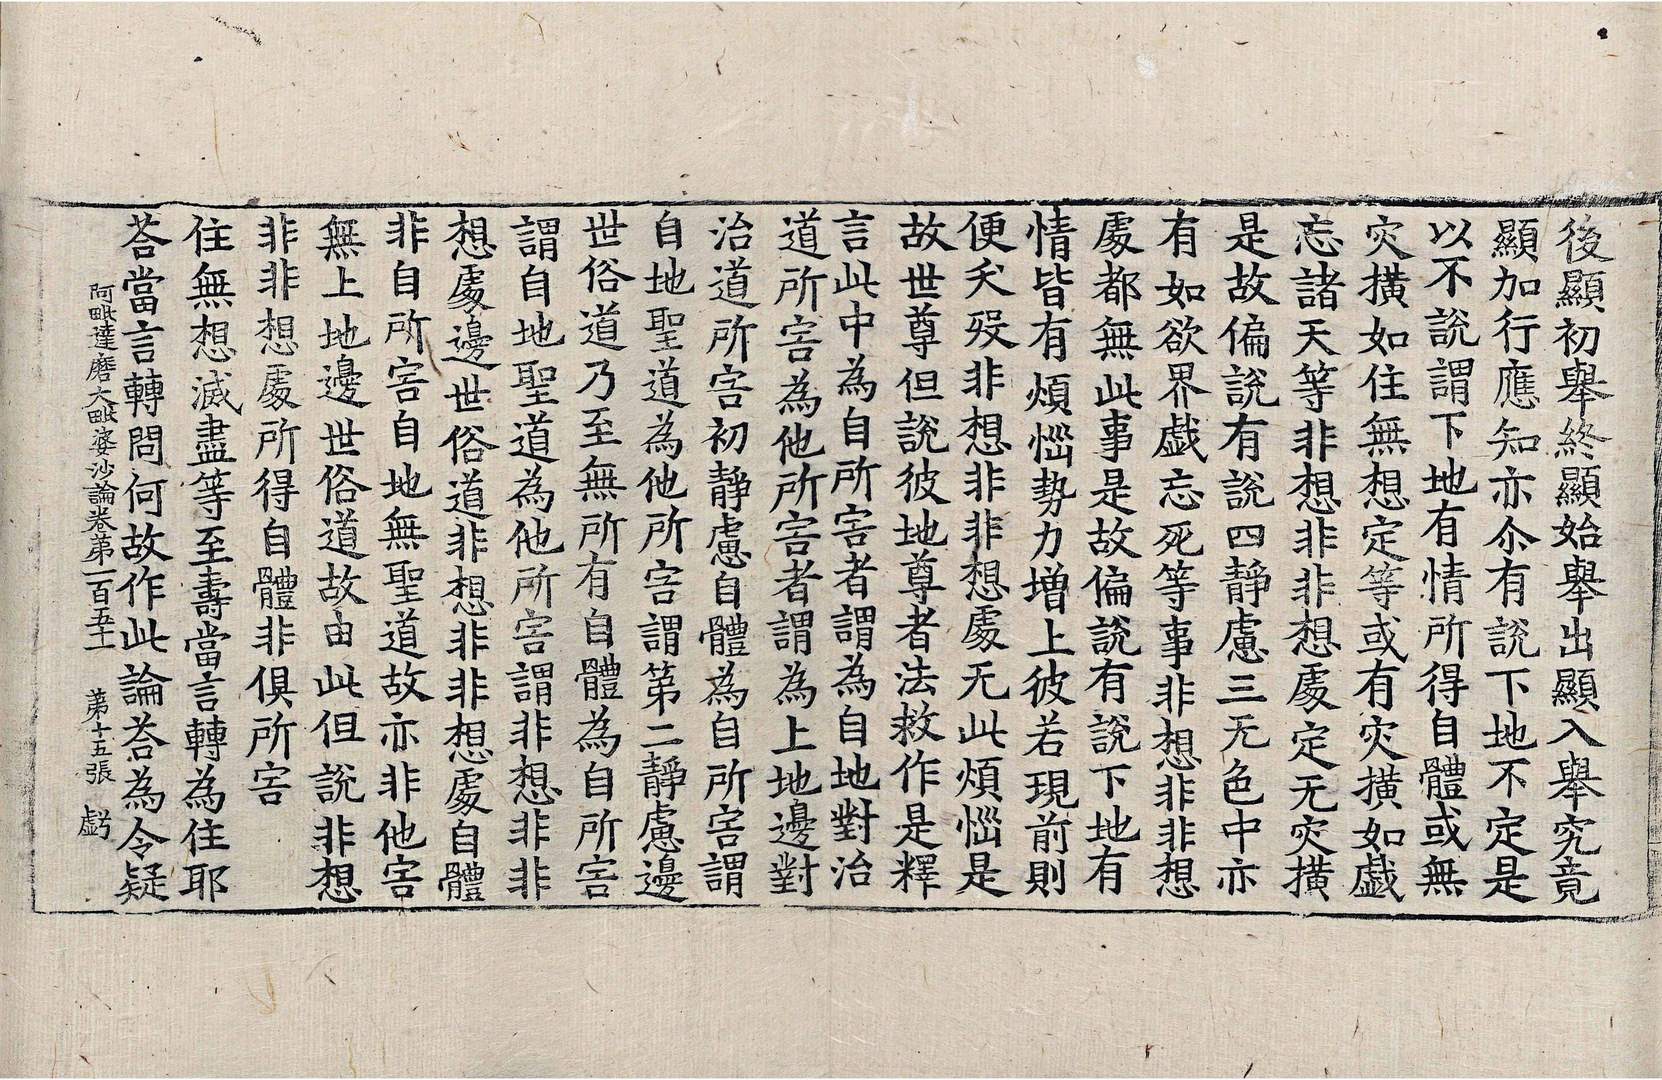 後顯初舉終顯始舉出顯入舉究竟
顯加行應知亦尒有說下地不定是
以不說謂下地有情所得自體或無
灾撗如住無想定等或有灾撗如戱
忘諸天等非想非非想處定无灾撗
是故偏說有說四靜慮三无色中亦
有如欲界戱忘死等事非想非非想
處都無此事是故偏說有說下地有
情皆有煩惱勢力增上彼若現前則
便夭歿非想非非想處无此煩惱是
故世尊但說彼地尊者法救作是釋
言此中為自所害者謂為自地對治
道所害為他所害者謂為上地邊對
治道所害初靜慮自體為自所害謂
自地聖道為他所害謂第二靜慮邊
世俗道乃至無所有自體為自所害
謂自地聖道為他所害謂非想非非
想處邊世俗道非想非非想處自體
非自所害自地無聖道故亦非他害
無上地邊世俗道故由此但說非想
非非想處所得自體非俱所害
住無想滅盡等至壽當言轉為住耶
荅當言轉問何故作此論荅為令疑
阿毗達磨大毗婆沙論卷第一百五十一　第十五張　虧